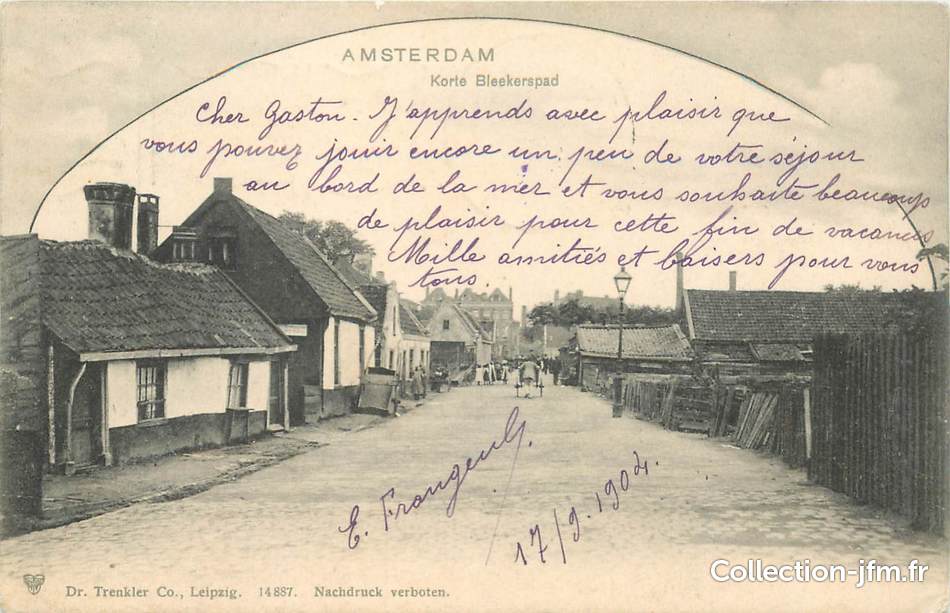 AMSTERDAM
Korte Bleekerspad
Cher Gaston. J'apprends avec plaisir que
vous pouvez jouir encore un peu de votre séjour
au bord de la mer et vous souhaite beaucoup
de plaisir pour cette fin de vacances
Mille amitiés et baisers pour vous
tous.
E.
17/9.1904.
Dr. Trenkler Co., Leipzig. 14887. Nachdruck verboten.
Collection-jfm.fr